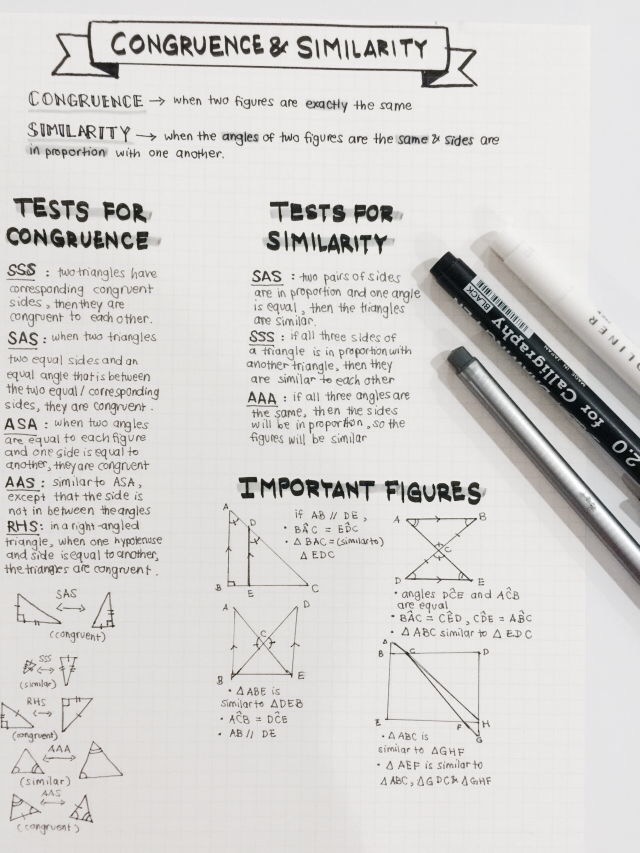 CONGRUENCE & SIMILARITY
CONGRUENCE → when two figures are exactly the same
SIMILARITY → when the angles of two figures are the same & sides are
in proportion with one another.
TESTS FOR
CONGRUENCE
SSS : two triangles have
corresponding congruent
sides, then they are
congruent to each other.
SAS : when two triangles
two equal sides and an
equal angle that is between
the two equal / corresponding
sides, they are congruent.
ASA : when two angles
are equal to each figure
and one side is equal to
another, they are congruent
AAS : similar to ASA,
except that the side is
not in between the angles
RHS : in a right-angled
triangle, when one hypotenuse
and side is equal to another,
the triangles are congruent.
SAS
(congruent)
SSS
(similar)
RHS
(congruent)
AAA
(similar)
AAS
(congruent)
TESTS FOR
SIMILARITY
SAS : two pairs of sides
are in proportion and one angle
is equal, then the triangles
are similar.
SSS : if all three sides of
a triangle is in proportion with
another triangle, then they
are similar to each other
AAA : if all three angles are
the same, then the sides
will be in proportion, so the
figures will be similar
IMPORTANT FIGURES
A
D
B
E
C
if AB // DE,
• BÂC = ED̂C
• △ BAC = (similar to)
△ EDC
A
B
C
D
E
• angles DĈE and AĈB
are equal
• BÂC = CÊD, CD̂E = AB̂C
• △ ABC similar to △ EDC
A
D
C
B
E
• △ ABE is
similar to △DEB
• AĈB = DĈE
• AB // DE
A
B
C
D
E
F
H
G
• △ ABC is
similar to △GHF
• △ AEF is similar to
△ ABC, △GDC & △GHF
BLACK
MADE IN JAPAN
2.0 for Calligraphy
LINER